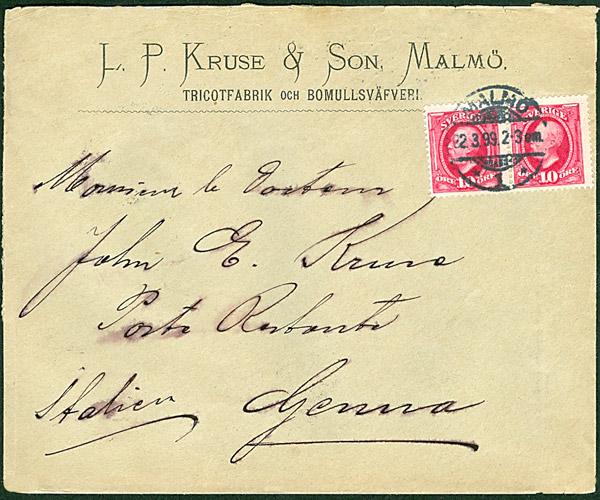 L. P. Kruse & Son, Malmö.
TRICOTFABRIK OCH BOMULLSVÄFVERI.
SVERIGE SVERIGE
MALMÖ
22.3.99.2-3 em.
1
ÖRE 10 ÖRE ÖRE 10 ÖRE
Monsieur le Docteur
John E. Kruse
Poste Restante
Italien Genua